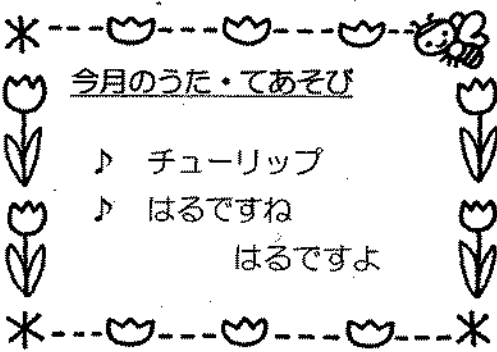 今月のうた・てあそび
♪ チューリップ
♪ はるですね
はるですよ